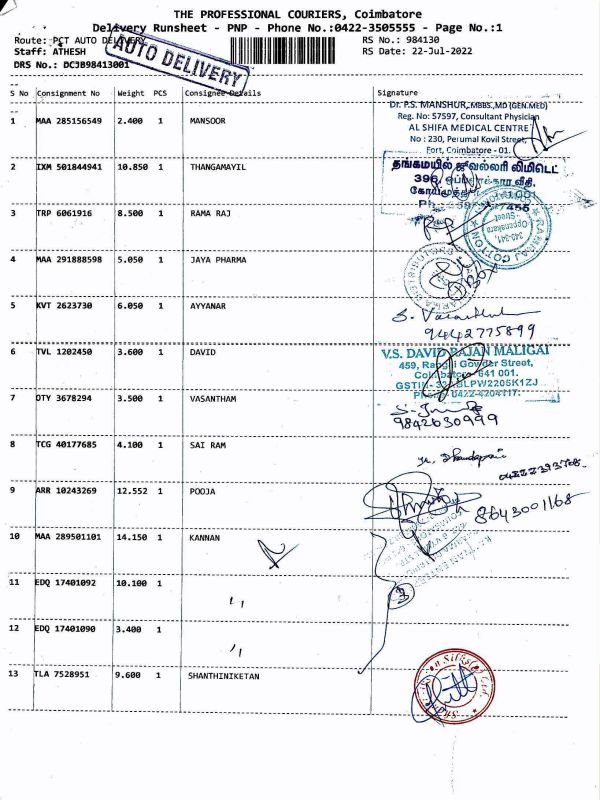 THE PROFESSIONAL COURIERS, Coimbatore
Delivery Runsheet - PNP - Phone No.:0422-3505555 - Page No.:1
Route: PCT AUTO DELIVERY
RS No.: 984130
Staff: ATHESH
RS Date: 22-Jul-2022
DRS No.: DCJB98413001
AUTO DELIVERY
S No Consignment No Weight PCS Consignee Details Signature
1 MAA 285156549 2.400 1 MANSOOR
Dr. P.S. MANSHUR, MBBS.,MD (GEN.MED)
Reg. No: 57597, Consultant Physician
AL SHIFA MEDICAL CENTRE
No : 230, Perumal Kovil Street,
Fort, Coimbatore - 01.
2 IXM 501844941 10.850 1 THANGAMAYIL
தங்கமயில் ஜுவல்லரி லிமிடெட்
396,
3 TRP 6061916 8.500 1 RAMA RAJ
RAMRAJ COTTON
340-341,
Oppanakara
Street
4 MAA 291888598 5.050 1 JAYA PHARMA
5 KVT 2623730 6.050 1 AYYANAR
9442775899
6 TVL 1202450 3.600 1 DAVID
V.S. DAVID RAJAN MALIGAI
459, Rangai Gowder Street,
Coimbatore - 641 001.
7 OTY 3678294 3.500 1 VASANTHAM
9842630999
8 TCG 40177685 4.100 1 SAI RAM
9 ARR 10243269 12.552 1 POOJA
8643001168
10 MAA 289501101 14.150 1 KANNAN
11 EDQ 17401092 10.100 1 "
12 EDQ 17401090 3.400 1 "
13 TLA 7528951 9.600 1 SHANTHINIKETAN